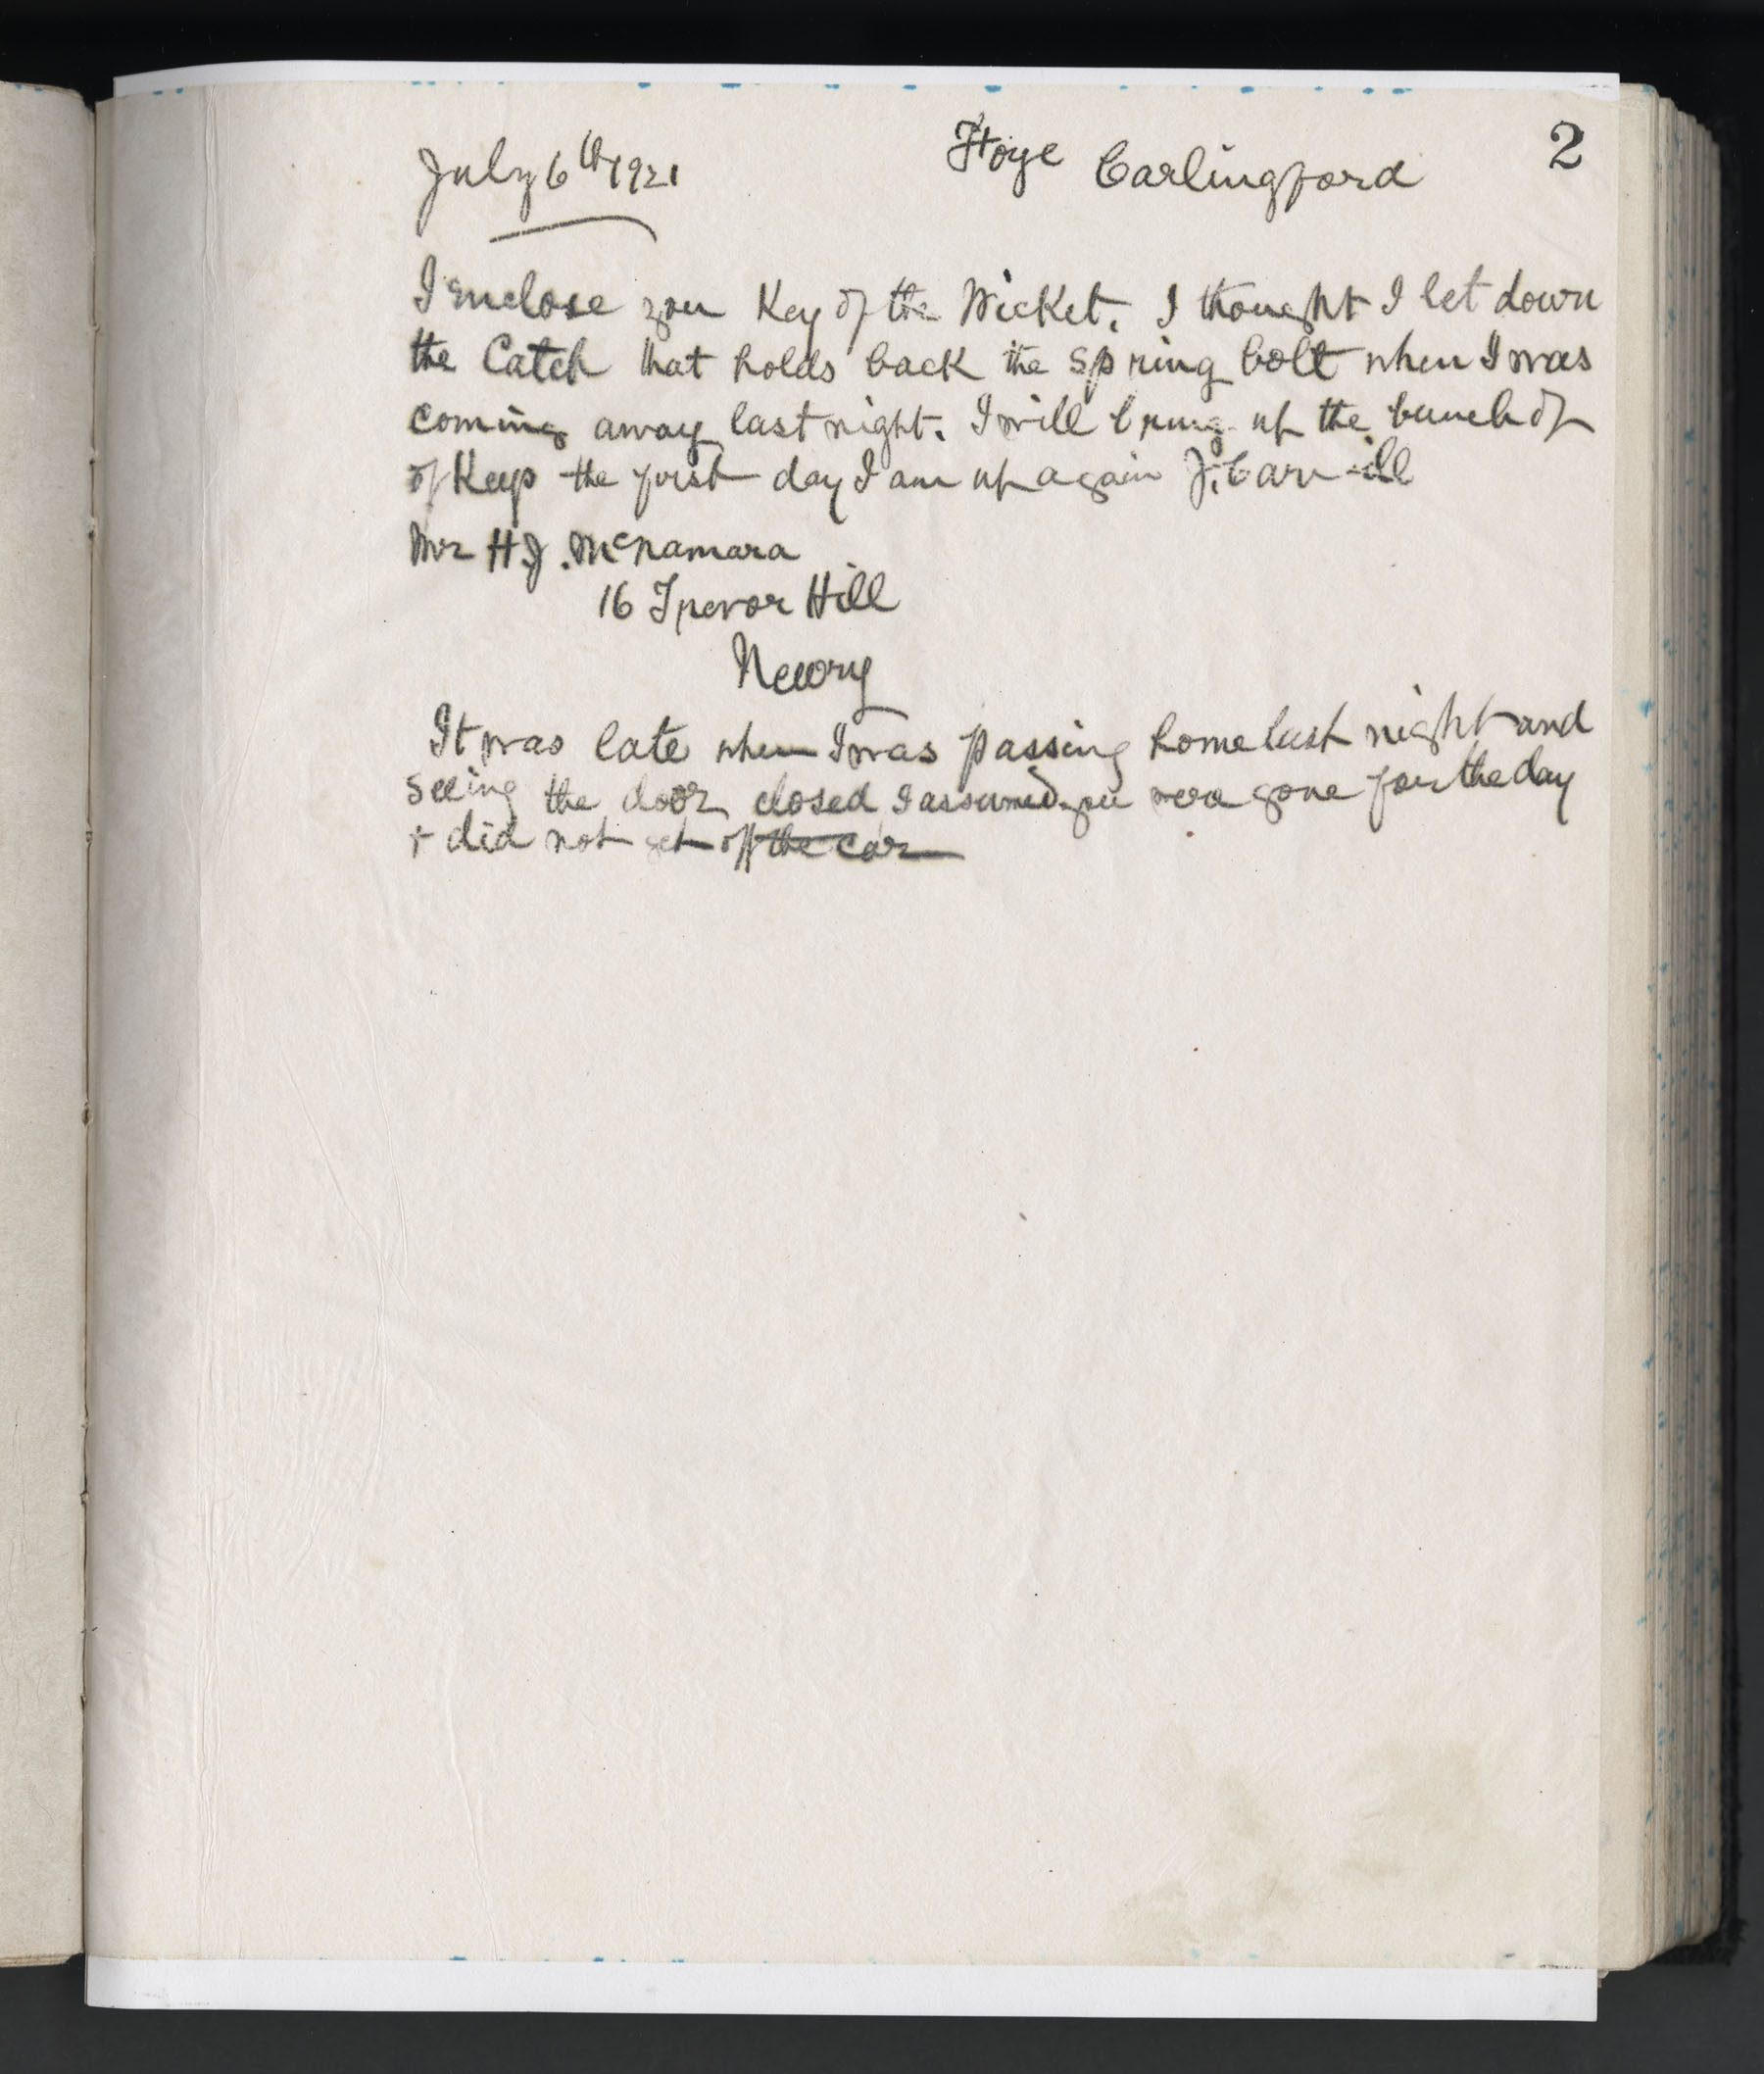 2
July 6th 1921 Ftoye Carlingford
I enclose you Key of the Wicket. I thought I let down
the Catch that holds back the spring bolt when I was
coming away last night. I will bring up the bunch of
of Keys the first day I am up again J. Carvill
Mr H.J. McNamara
16 Trevor Hill
Newry
It was late when I was passing home last night and
seeing the door closed I assumed you were gone for the day
+ did not get off the car